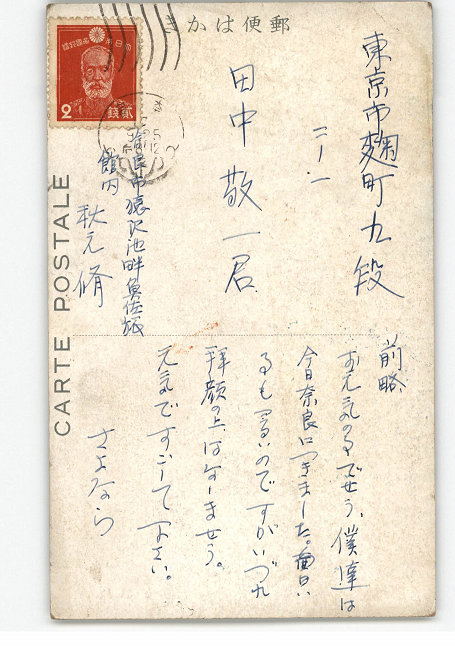 郵便はがき
CARTE POSTALE
大日本帝国郵便
2
銭
東京市麹町九段
二ノ一
田中敬一君
奈良市猿沢池畔魚佐旅
館内
秋元脩
前略
お元気のことでせう、僕達は
今日奈良につきました。面白い
るもあるいのですがいづれ
拝顔の上はなしませう。
元気ですごして下さい。
さよなら